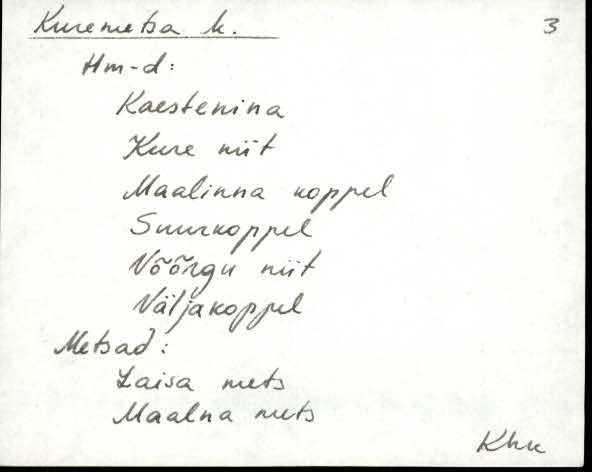 Kuremetsa k. 3
Hm-d:
Kaestenina
Kure niit
Maalinna koppel
Suurkoppel
Võõrgu niit
Väljakoppel
Metsad:
Laisa mets
Maalna mets
Khk